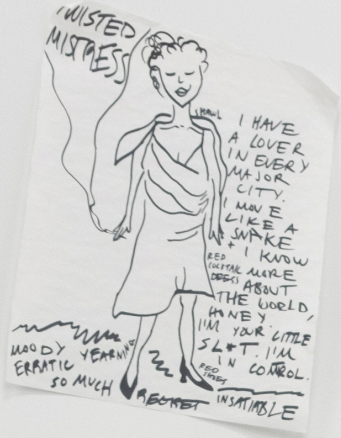 TWISTED
MISTRESS
SHAWL
I HAVE
A LOVER
IN EVERY
MAJOR
CITY.
I MOVE
LIKE A
SNAKE
+ I KNOW
MORE
ABOUT
THE WORLD,
HONEY.
I'M YOUR LITTLE
SL*T. I'M
IN CONTROL.
RED
COCKTAIL
DRESS
MOODY YEARNING
ERRATIC
SO MUCH REGRET INSATIABLE
RED
SHOES